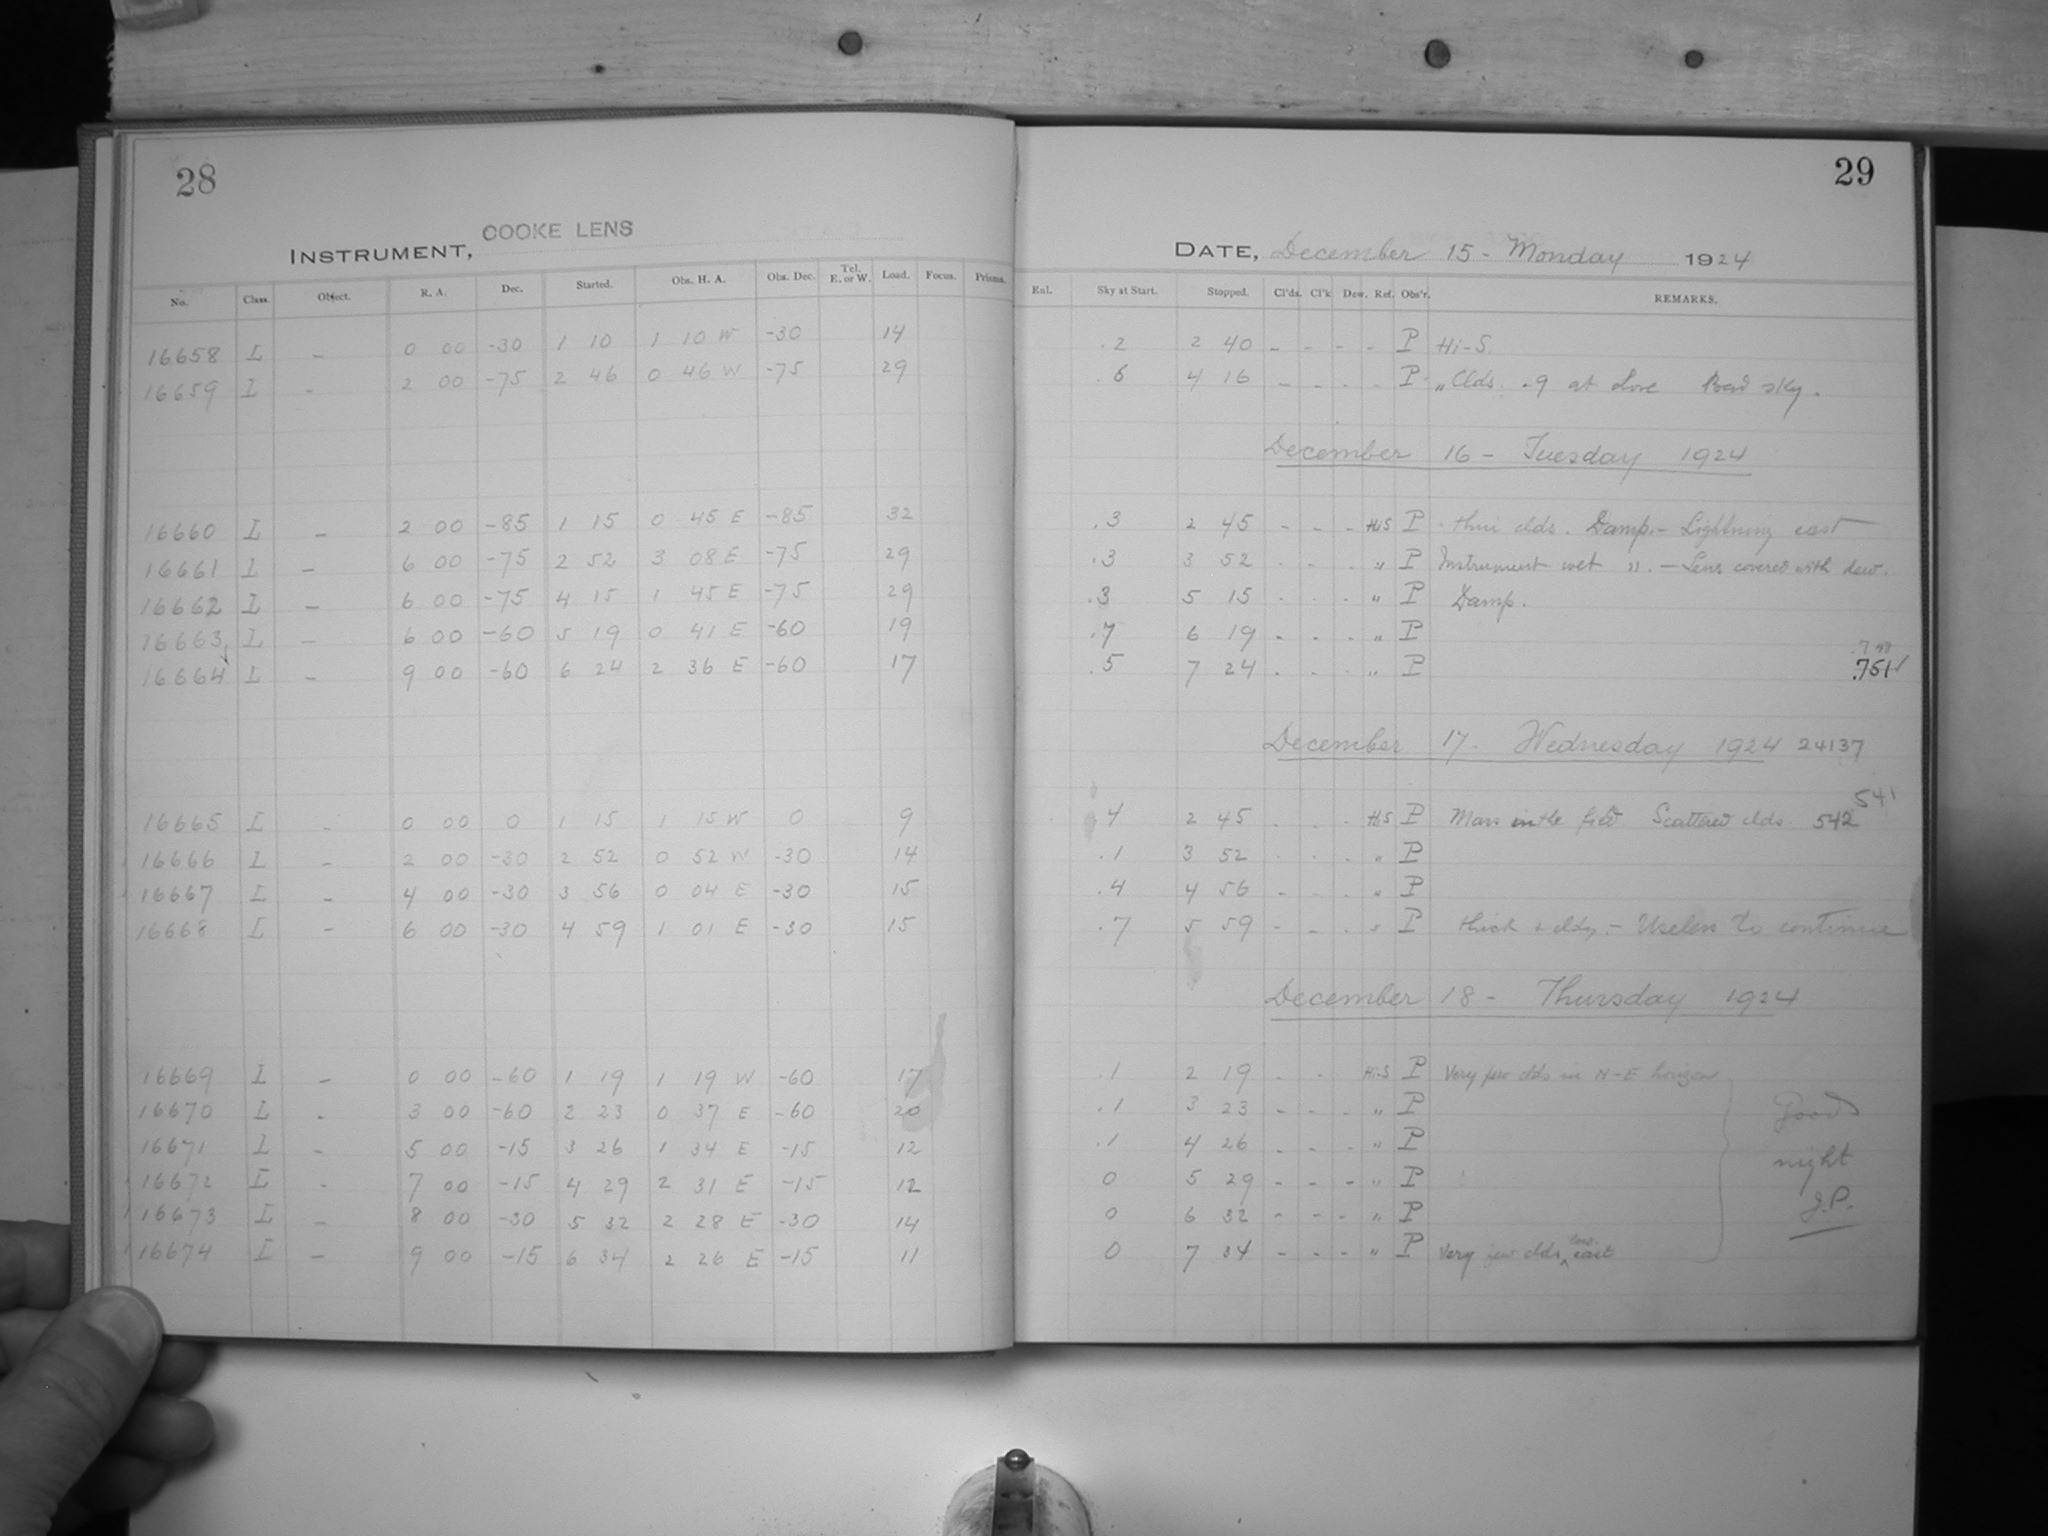 28
COOKE LENS
INSTRUMENT,
No. Class. Object. R. A. Dec. Started. Obs. H. A. Obs. Dec. Tel. E. or W. Load. Focus. Prisms.
16658 I – 0 00 -30 1 10 1 10 W -30 14
16659 I – 2 00 -75 2 46 0 46 W -75 29
16660 I – 2 00 -85 1 15 0 45 E -85 32
16661 I – 6 00 -75 2 52 3 08 E -75 29
16662 I – 6 00 -75 4 15 1 45 E -75 29
16663 I – 6 00 -60 5 19 0 41 E -60 19
16664 I – 9 00 -60 6 24 2 36 E -60 17
16665 I – 0 00 0 1 15 1 15 W 0 9
16666 I – 2 00 -30 2 52 0 52 W -30 14
16667 I – 4 00 -30 3 56 0 04 E -30 15
16668 I – 6 00 -30 4 59 1 01 E -30 15
16669 I – 0 00 -60 1 19 1 19 W -60 17
16670 I – 3 00 -60 2 23 0 37 E -60 20
16671 I – 5 00 -15 3 26 1 34 E -15 12
16672 I – 7 00 -15 4 29 2 31 E -15 12
16673 I – 8 00 -30 5 32 2 28 E -30 14
16674 I – 9 00 -15 6 34 2 26 E -15 11
29
DATE, December 15 - Monday 1924
Sky at Start. Stopped. Cl'ds. Cl'k Dew. Ref. Obs'r. REMARKS.
.2 2 40 - - - - P Hi-S.
.6 4 16 - - - - P " Clds. .9 at close Bad sky.
December 16 - Tuesday 1924
.3 2 45 - - - HiS P thin clds. Damp.- Lightning east
.3 3 52 - - - " P Instrument wet ". - Lens covered with dew.
.3 5 15 - - - " P Damp.
.7 6 19 - - - " P
.5 7 24 - - - " P .751✓
December 17 - Wednesday 1924 24137
541
.4 2 45 - - - HiS P Mars in the field Scattered clds. 542
.1 3 52 - - - " P
.4 4 56 - - - " P
.7 5 59 - - - " P thick & cldy. - Useless to continue
December 18 - Thursday 1924
.1 2 19 - - Hi-S P Very few clds in N-E horizon
.1 3 23 - - - " P Good
.1 4 26 - - - " P night
0 5 29 - - - " P J.P.
0 6 32 - - - " P
0 7 34 - - - " P Very few clds, east